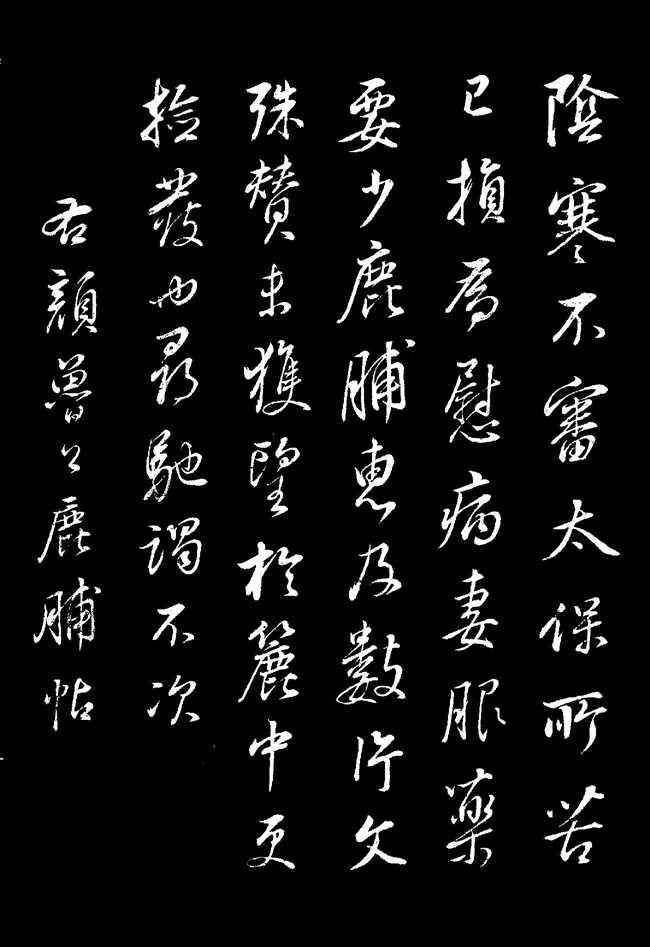 陰寒不審太保所苦
已損為慰病妻服藥
要少鹿脯惠及數片文
殊賛未獲望於簏中更
撿發也尋馳謁不次
右顏魯公鹿脯帖